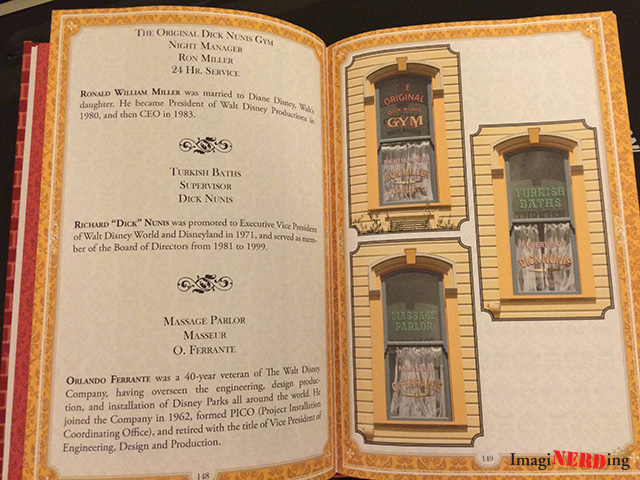 THE ORIGINAL DICK NUNIS GYM
NIGHT MANAGER
RON MILLER
24 HR. SERVICE
RONALD WILLIAM MILLER was married to Diane Disney, Walt's
daughter. He became President of Walt Disney Productions in
1980, and then CEO in 1983.
TURKISH BATHS
SUPERVISOR
DICK NUNIS
RICHARD “DICK” NUNIS was promoted to Executive Vice President
of Walt Disney World and Disneyland in 1971, and served as mem-
ber of the Board of Directors from 1981 to 1999.
MASSAGE PARLOR
MASSEUR
O. FERRANTE
ORLANDO FERRANTE was a 40-year veteran of The Walt Disney
Company, having overseen the engineering, design produc-
tion, and installation of Disney Parks all around the world. He
joined the Company in 1962, formed PICO (Project Installation
Coordinating Office), and retired with the title of Vice President of
Engineering, Design and Production.
148
ORIGINAL
DICK NUNIS
GYM
TURKISH
BATHS
SUPERVISOR
DICK NUNIS
MASSAGE
PARLOR
MASSEUR
O. FERRANTE
149
ImagiNERDing